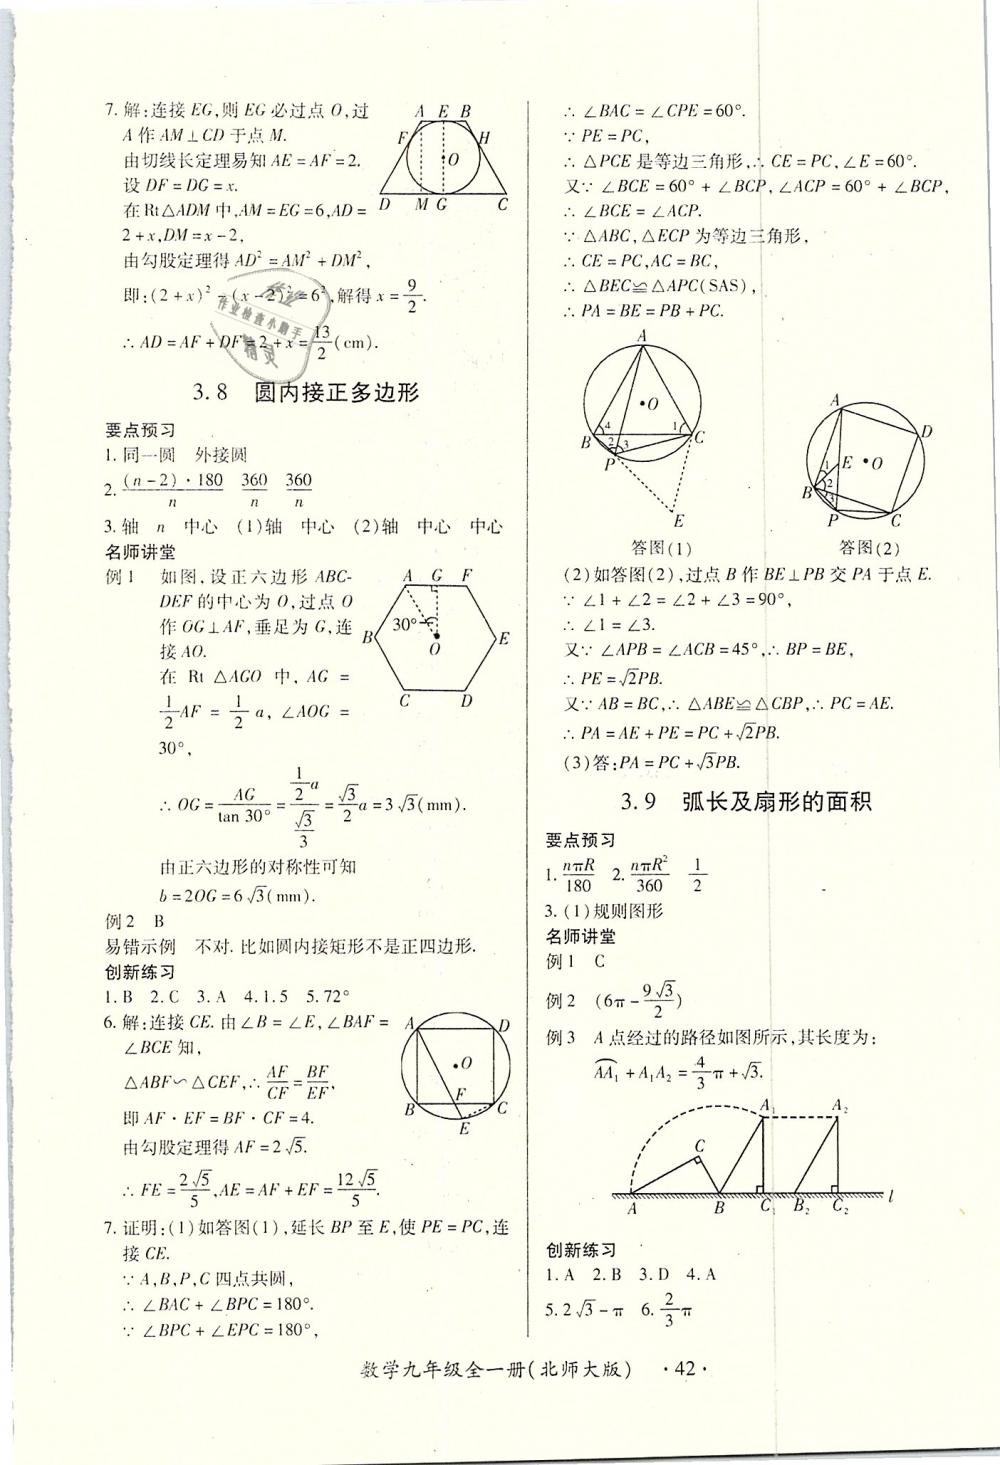 7. 解:连接 EG,则 EG 必过点 O,过
A 作 AM⊥CD 于点 M.
由切线长定理易知 AE=AF=2.
设 DF=DG=x.
在 Rt△ADM 中,AM=EG=6,AD=
2+x,DM=x-2,
由勾股定理得 AD²=AM²+DM²,
即:(2+x)²-(x-2)²=6²,解得 x=9/2.
∴ AD=AF+DF=2+x=13/2(cm).
A E B
F H
O
D M G C
作业
作业检查小助手
精灵
3.8 圆内接正多边形
要点预习
1. 同一圆 外接圆
2. (n-2)·180/n 360/n 360/n
3. 轴 n 中心 (1)轴 中心 (2)轴 中心 中心
名师讲堂
例1 如图,设正六边形 ABC-
DEF 的中心为 O,过点 O
作 OG⊥AF,垂足为 G,连
接 AO.
在 Rt △AGO 中, AG =
1/2 AF = 1/2 a, ∠AOG =
30°,
∴ OG = AG/tan 30° = (1/2 a)/(√3/3) = √3/2 a = 3√3(mm).
由正六边形的对称性可知
b=2OG=6√3(mm).
A G F
B 30° O E
C D
例2 B
易错示例 不对. 比如圆内接矩形不是正四边形.
创新练习
1. B 2. C 3. A 4. 1.5 5. 72°
6. 解:连接 CE. 由∠B=∠E,∠BAF=
∠BCE 知,
△ABF∽△CEF,∴ AF/CF = BF/EF,
即 AF·EF=BF·CF=4.
由勾股定理得 AF=2√5.
∴ FE=2√5/5,AE=AF+EF=12√5/5.
A D
O
F
B C
E
7. 证明:(1)如答图(1),延长 BP 至 E,使 PE=PC,连
接 CE.
∵ A,B,P,C 四点共圆,
∴ ∠BAC+∠BPC=180°.
∵ ∠BPC+∠EPC=180°,
∴ ∠BAC=∠CPE=60°.
∵ PE=PC,
∴ △PCE 是等边三角形,∴ CE=PC,∠E=60°.
又∵ ∠BCE=60°+∠BCP,∠ACP=60°+∠BCP,
∴ ∠BCE=∠ACP.
∵ △ABC,△ECP 为等边三角形,
∴ CE=PC,AC=BC,
∴ △BEC≌△APC(SAS),
∴ PA=BE=PB+PC.
A
O
4 1
B 2 3 C
P
E
答图(1)
A D
1 E O
B 2
3
P C
答图(2)
(2)如答图(2),过点 B 作 BE⊥PB 交 PA 于点 E.
∵ ∠1+∠2=∠2+∠3=90°,
∴ ∠1=∠3.
又∵ ∠APB=∠ACB=45°,∴ BP=BE,
∴ PE=√2PB.
又∵ AB=BC,∴ △ABE≌△CBP,∴ PC=AE.
∴ PA=AE+PE=PC+√2PB.
(3)答:PA=PC+√3PB.
3.9 弧长及扇形的面积
要点预习
1. nπR/180 2. nπR²/360 1/2
3. (1)规则图形
名师讲堂
例1 C
例2 (6π-9√3/2)
例3 A 点经过的路径如图所示,其长度为:
⌒AA₁+A₁A₂=4/3π+√3.
A₁ A₂
C
A B C₁ B₂ C₂ l
创新练习
1. A 2. B 3. D 4. A
5. 2√3-π 6. 2/3π
数学九年级全一册(北师大版) ·42·